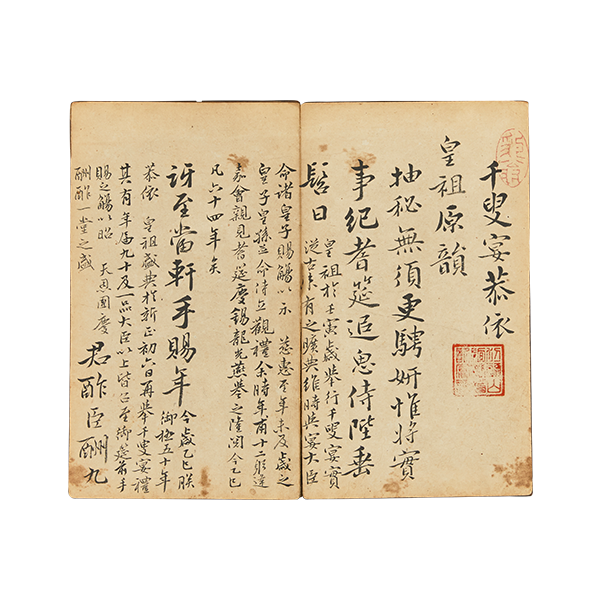 千叟宴恭依
皇祖原韻
抽秘無須更騁妍惟將實
事紀耆筵追思侍陛垂
髫日
皇祖於壬寅歲舉行千叟宴實
從古未有之曠典維時與宴大臣
命諸皇子賜觴以示
慈惠至年未及歲之
皇子皇孫並命侍立觀禮余時年甫十二躬逢
嘉會親見耆筵慶錫龍光燕譽之隆閱今乙巳
凡六十四年矣
訝至當軒手賜年
今歲乙巳朕
御極五十年
恭依
皇祖盛典於新正初六日再舉千叟宴禮
其有年屆九十及一品大臣以上皆召至御筵前手
賜之觴以昭
天恩國慶
酬酢一堂之盛
君酢臣酬九